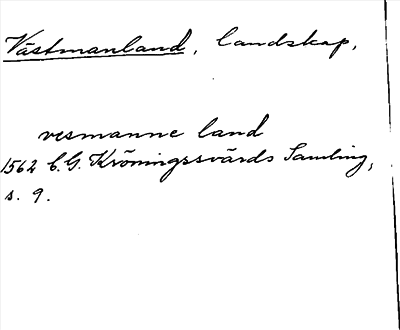 Västmanland, landskap,
vesmanne land
1562 C.G. Kröningssvärds Samling,
s. 9.